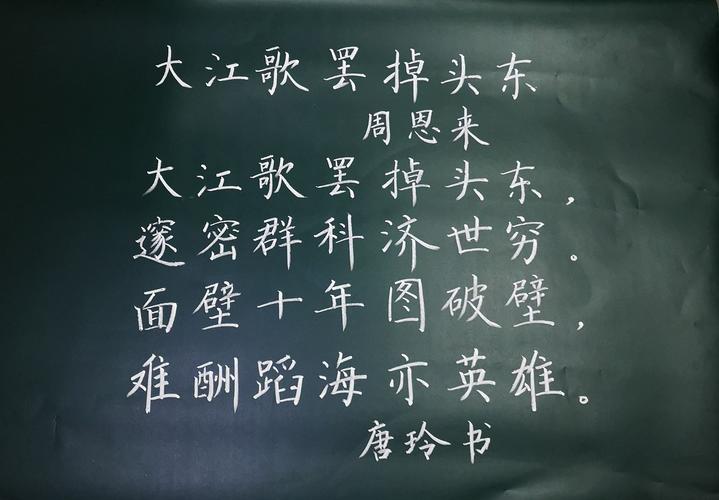 大江歌罢掉头东
周恩来
大江歌罢掉头东，
邃密群科济世穷。
面壁十年图破壁，
难酬蹈海亦英雄。
唐玲书